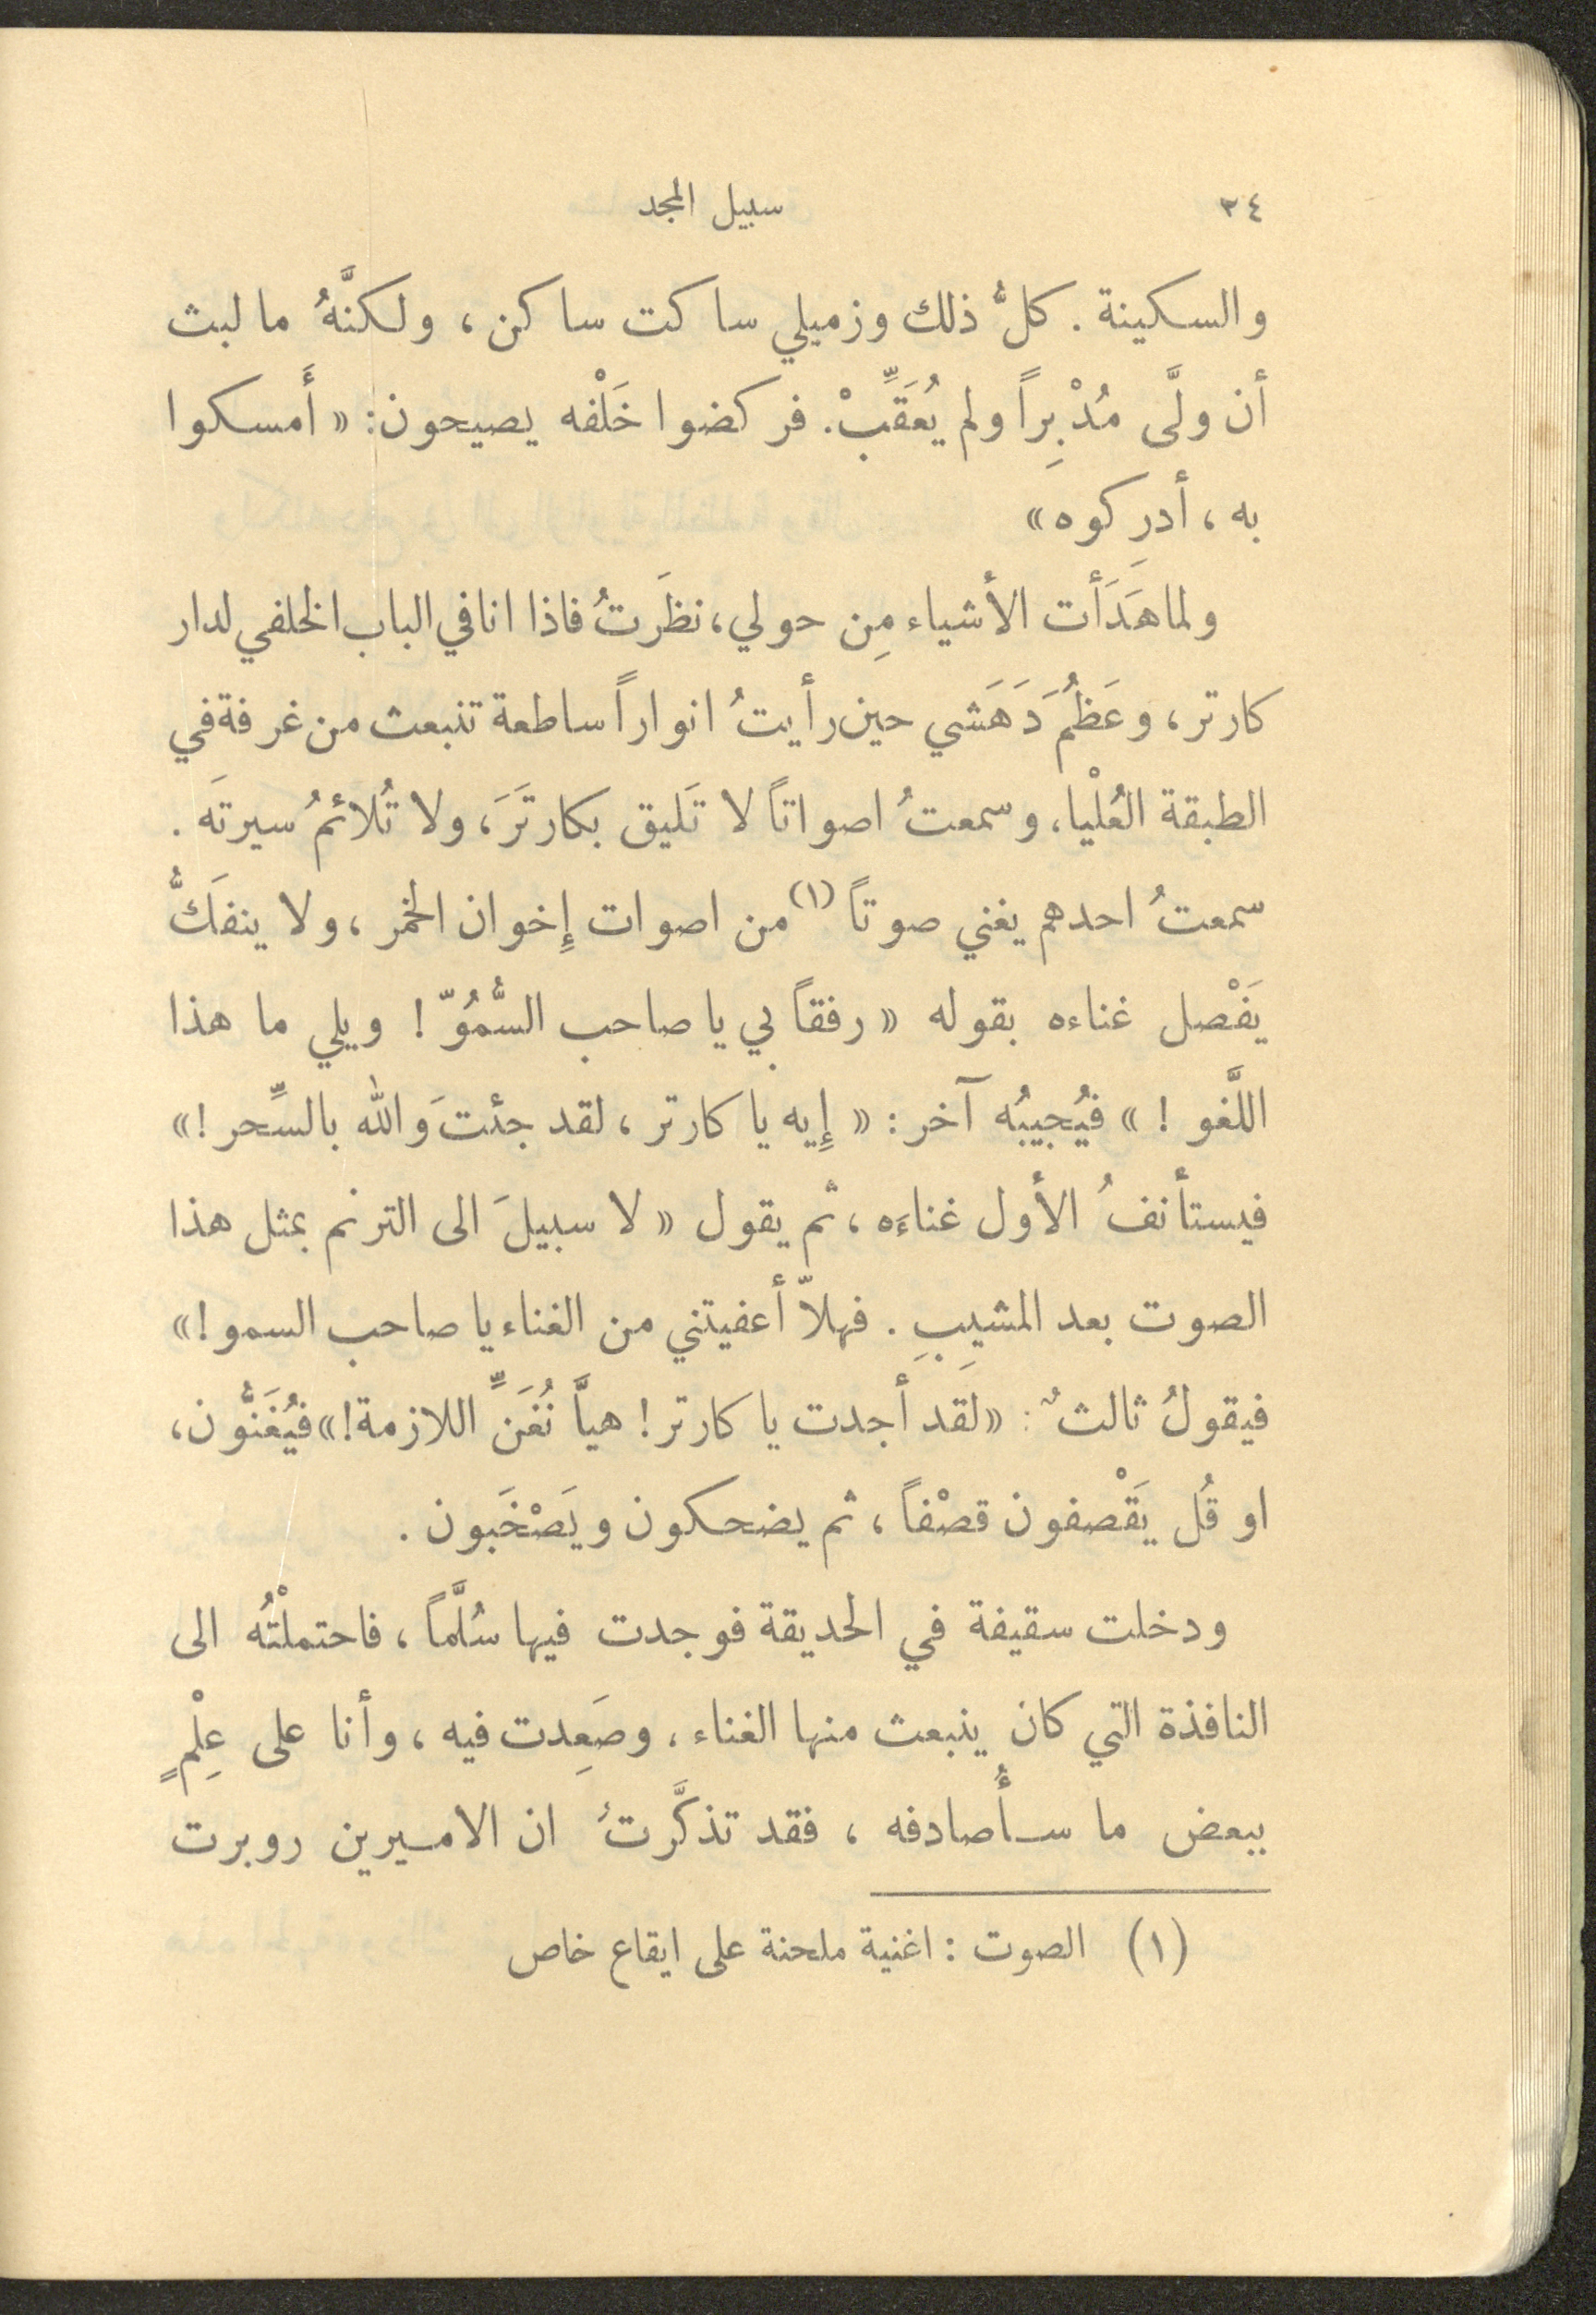 ٣٤ سبيل المجد
والسكينة. كلُّ ذلك وزميلي ساكت ساكن، ولكنَّهُ ما لبث
أن ولَّى مُدْبِراً ولم يُعَقِّبْ. فركضوا خَلْفه يصيحون: «أَمسكوا
به، أدرِكوه»
ولما هَدَأَت الأشياء مِن حولي، نظَرَتُ فاذا انا في الباب الخلفي لدار
كارتر، وعَظُمَ دَهَشي حين رأيتُ انواراً ساطعة تنبعث من غرفة في
الطبقة العُلْيا، وسمعتُ اصواتاً لا تَليق بكارتَرَ، ولا تُلائمُ سيرتَه.
سمعتُ احدهم يغني صوتاً (١) من اصوات إِخوان الخمر، ولا ينفَكُّ
يَفْصل غناءه بقوله «رفقاً بي يا صاحب السُّمُوّ! ويلي ما هذا
اللَّغو!» فيُجيبُه آخر: «إِيه يا كارتر، لقد جئتَ والله بالسِّحر!»
فيستأنفُ الأول غناءَه، ثم يقول «لا سبيلَ الى الترنم بمثل هذا
الصوت بعد المشيبِ. فهلاّ أعفيتني من الغناء يا صاحب السمو!»
فيقولُ ثالثٌ: «لَقد أجدت يا كارتر! هيَّا نُغَنِّ اللازمة!» فيُغَنُّون،
او قُل يَقْصفون قصْفاً، ثم يضحكون ويَصْخَبون.
ودخلت سقيفة في الحديقة فوجدت فيها سُلَّماً، فاحتملْتُه الى
النافذة التي كان ينبعث منها الغناء، وصَعِدت فيه، وأنا على عِلْمٍ
ببعض ما سأُصادفه، فقد تذكَّرتُ ان الاميرين روبرت
(١) الصوت: اغنية ملحنة على ايقاع خاص